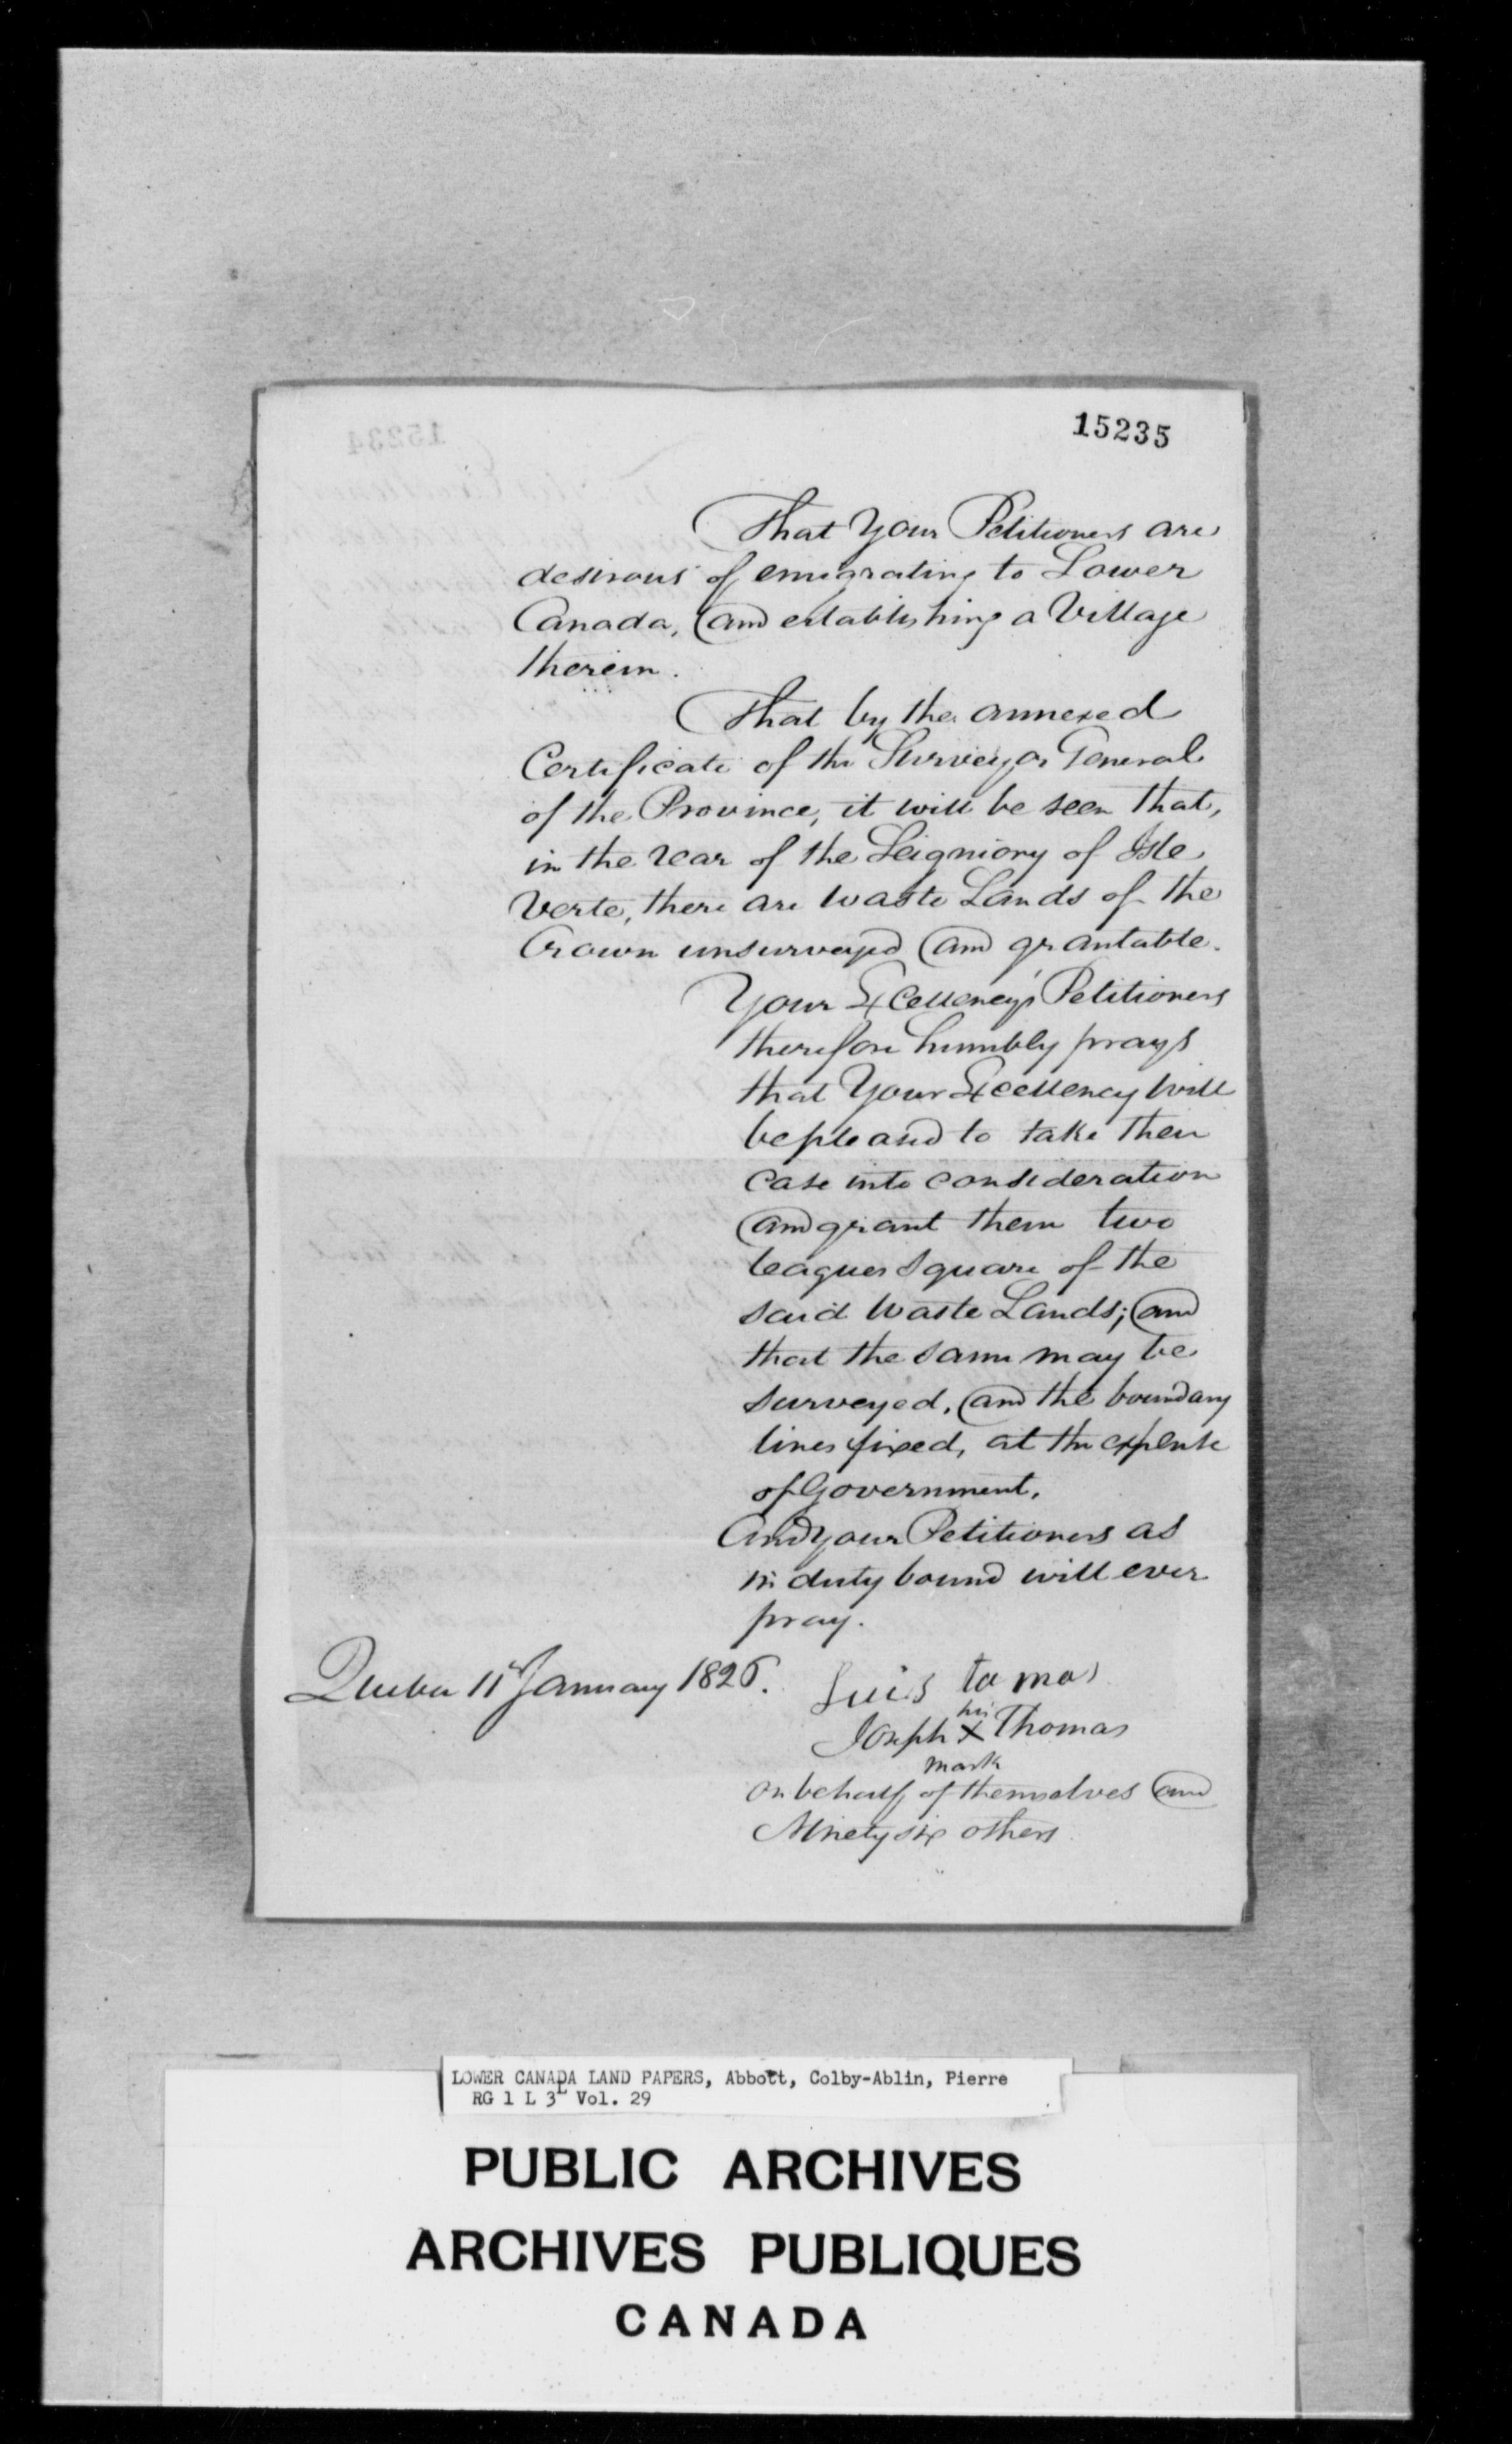 15235
15234
That Your Petitioners are
desirous of emigrating to Lower
Canada, and establishing a Village
therein.
That by the annexed
Certificate of the Surveyor General
of the Province, it will be seen that,
in the rear of the Seigniory of Isle
Verte, there are waste Lands of the
Crown unsurveyed and grantable.
Your Excellency's Petitioners
therefore humbly prays
that Your Excellency will
be pleased to take their
case into consideration
and grant them two
leagues square of the
said waste Lands; and
that the same may be
surveyed, and the boundary
lines fixed, at the expense
of Government.
And your Petitioners as
in duty bound will ever
pray.
Quebec 11th January 1826.
Luis tomas
his
Joseph X Thomas
mark
on behalf of themselves and
Ninety six others
LOWER CANADA LAND PAPERS, Abbott, Colby-Ablin, Pierre
RG 1 L 3L Vol. 29
PUBLIC ARCHIVES
ARCHIVES PUBLIQUES
CANADA